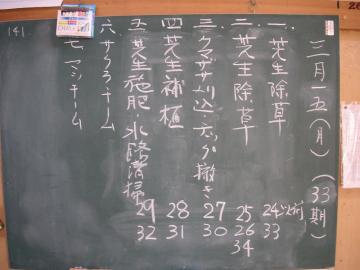 三月一五(月) (33期)
一. 芝生除草 24以前 33
二. 芝生除草 25 26 34
三. クマザサ刈込・チップ撤き 27 30
四. 芝生補植 28 31
五. 芝生施肥・水路清掃 29 32
六. サクラチーム
七. マツチーム
141